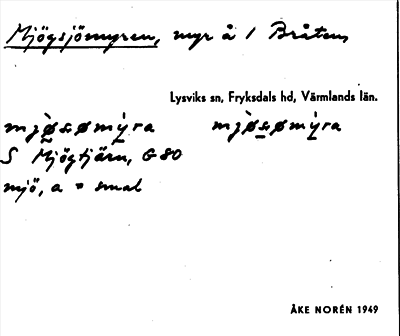 Mjögsjömyren, myr å 1 Bråten
Lysviks sn, Fryksdals hd, Värmlands län.
S Mjögtjärn, G 80
mjö, a = smal
ÅKE NORÉN 1949